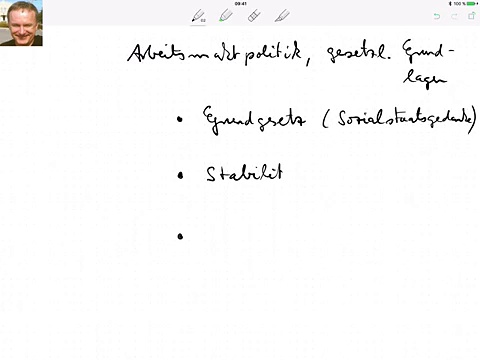 09:41
100 %
Arbeitsmarktpolitik, gesetzl. Grund-
lagen
• Grundgesetz (Sozialstaatsgedanke)
• Stabilit
•